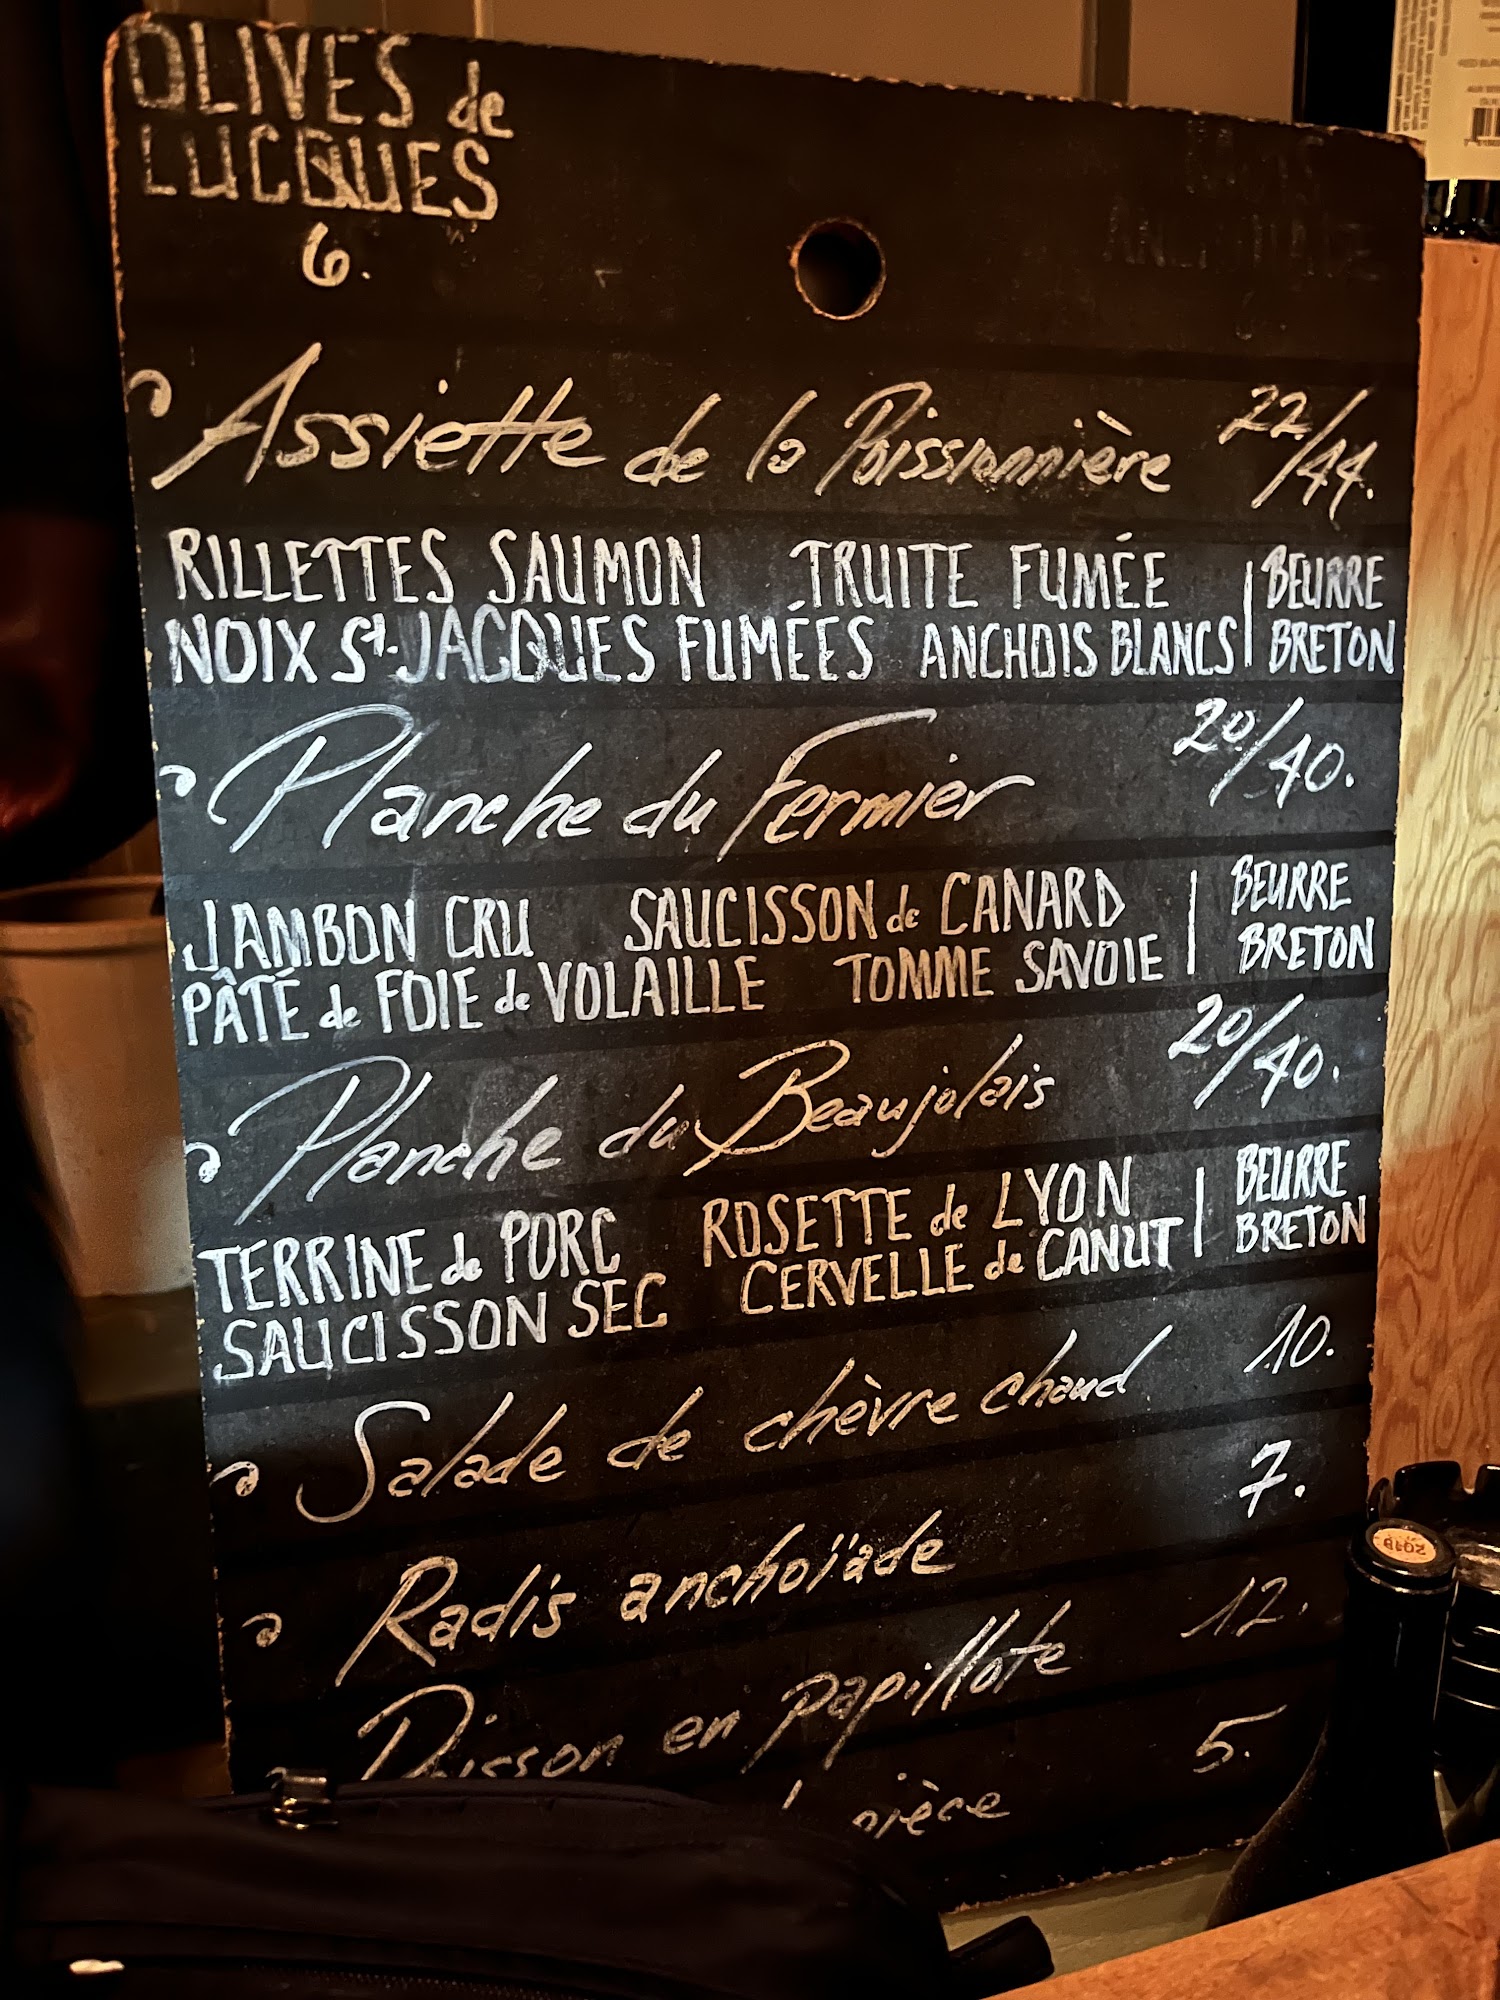 OLIVES de
LUCQUES
6.
Assiette de la Poissonnière 22./44.
RILLETTES SAUMON TRUITE FUMÉE | BEURRE
NOIX St-JACQUES FUMÉES ANCHOIS BLANCS | BRETON
Planche du Fermier 20./40.
JAMBON CRU SAUCISSON de CANARD | BEURRE
PÂTÉ de FOIE de VOLAILLE TOMME SAVOIE | BRETON
Planche du Beaujolais 20./40.
TERRINE de PORC ROSETTE de LYON | BEURRE
SAUCISSON SEC CERVELLE de CANUT | BRETON
Salade de chèvre chaud 10.
Radis anchoïade 7.
Poisson en papillote 12.
pièce 5.
2018